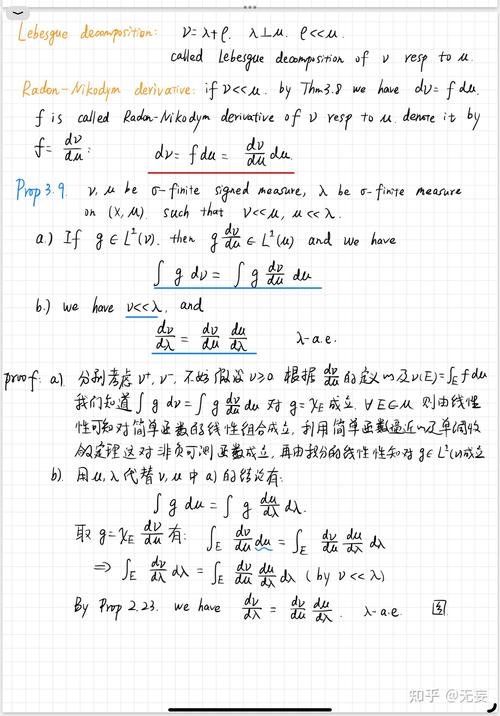 Lebesgue decomposition: ν=λ+ρ. λ⊥μ. ρ<<μ.
called Lebesgue decomposition of ν resp to μ.
Radon-Nikodym derivative: if ν<<μ. by Thm3.8 we have dν=fdμ.
f is called Radon-Nikodym derivative of ν resp to μ. denote it by
f=dν/dμ:
dν=fdμ=dν/dμ dμ.
Prop 3.9. ν, μ be σ-finite signed measure, λ be σ-finite measure
on (X,M). such that ν<<μ, μ<<λ.
a.) If g∈L¹(ν). then g dν/dμ∈L¹(μ) and we have
∫g dν=∫g dν/dμ dμ
b.) we have ν<<λ, and
dν/dλ=dν/dμ dμ/dλ λ-a.e.
proof: a) 分别考虑ν⁺,ν⁻, 不妨假设ν≥0. 根据dν/dμ的定义以及ν(E)=∫_E fdμ
我们知道∫g dν=∫g dν/dμ dμ对g=χ_E成立, ∀E∈M. 则由线性
性可知对简单函数的线性组合成立. 利用简单函数逼近以及单调收
敛定理这对非负可测函数成立, 再由积分的线性性知对g∈L¹(ν)成立
b) 用μ,λ代替ν,μ中a)的结论有:
∫g dμ=∫g dμ/dλ dλ.
取g=χ_E dν/dμ有: ∫_E dν/dμ dμ=∫_E dν/dμ dμ/dλ dλ
⇒∫_E dν/dλ dλ=∫_E dν/dμ dμ/dλ dλ (by ν<<λ)
By Prop 2.23. we have dν/dλ=dν/dμ dμ/dλ. λ-a.e.
知乎 @无妄